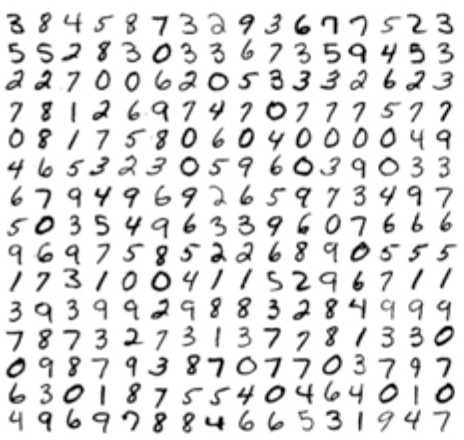 3 8 4 5 8 7 3 2 9 3 6 7 7 5 2 3
5 5 2 8 3 0 3 3 6 7 3 5 9 4 5 3
2 2 7 0 0 6 2 0 5 3 3 3 2 6 2 3
7 8 1 2 6 9 7 4 7 0 7 7 7 5 7 7
0 8 1 7 5 8 0 6 0 4 0 0 0 0 4 9
4 6 5 3 2 3 0 5 9 6 0 3 9 0 3 3
6 7 9 4 9 6 9 2 6 5 9 7 3 4 9 7
5 0 3 5 4 9 6 3 3 9 6 0 7 6 6 6
9 6 9 7 5 8 5 2 2 6 8 9 0 5 5 5
1 7 3 1 0 0 4 1 1 5 2 9 6 7 1 1
3 9 3 9 9 2 9 8 8 3 2 8 4 9 9 9
7 8 7 3 2 7 3 1 3 7 7 8 1 3 3 0
0 9 8 7 9 3 8 7 0 7 7 0 3 7 9 7
6 3 0 1 8 7 5 5 4 0 4 6 4 0 1 0
4 9 6 9 7 8 8 4 6 6 5 3 1 9 4 7